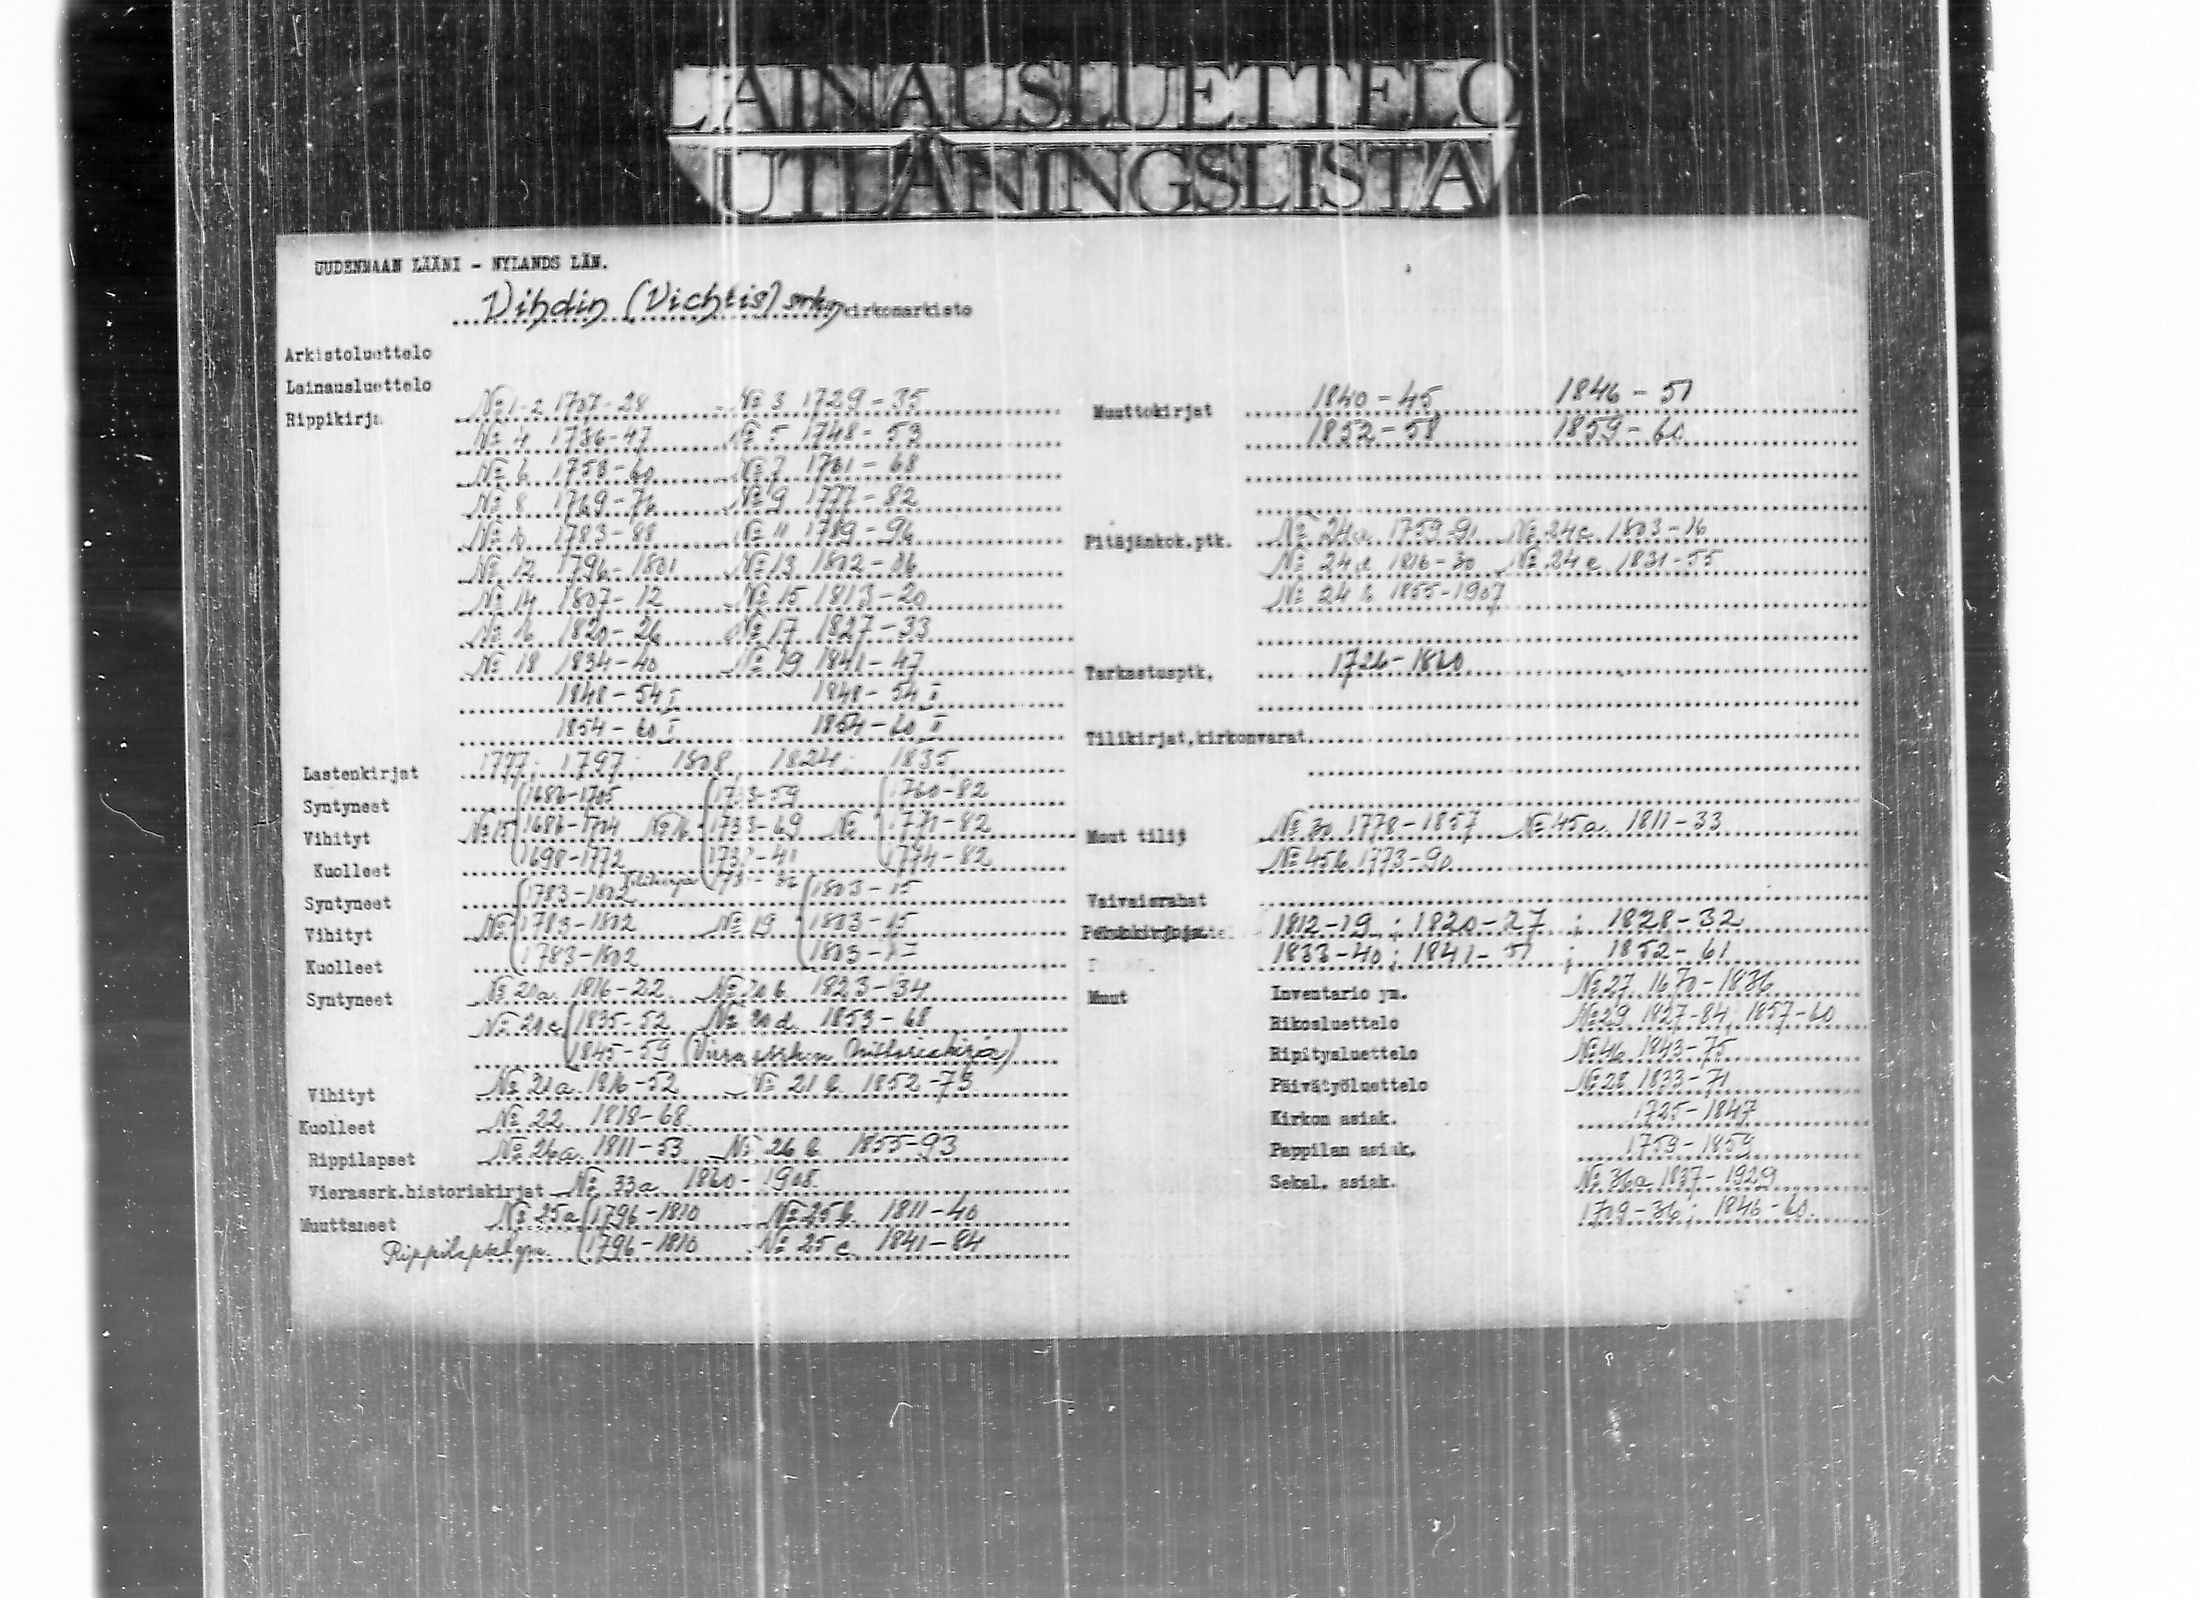 LAINAUSLUETTELO
UTLÅNINGSLISTA
UUDENMAAN LÄÄNI - NYLANDS LÄN.
Vihdin (Vichtis) srkn kirkonarkisto
Arkistoluettelo
Lainausluettelo
Rippikirja № 1-2 1707-28 № 3 1729-35
№ 4 1736-47 № 5 1748-53
№ 6 1753-60 № 7 1761-68
№ 8 1769-76 № 9 1777-82
№ 10 1783-88 № 11 1789-96
№ 12 1796-1801 № 13 1802-06
№ 14 1807-12 № 15 1813-20
№ 16 1820-26 № 17 1827-33
№ 18 1834-40 № 19 1841-47
1848-54 I 1848-54 II
1854-60 I 1854-60 II
Lastenkirjat 1777; 1797; 1808 1824; 1835
Syntyneet 1686-1705 1733-59 1760-82
Vihityt № 15 1686-1704 № 16 1733-69 № 1771-82
Kuolleet 1698-1772 41 1774-82
Syntyneet 1783-1802 1803-15
Vihityt № 1783-1802 № 19 1803-15
Kuolleet 1783-1802 1803-15
Syntyneet № 20a 1816-22 № 20b 1823-34
№ 20c 1835-52 № 20d 1853-68
1845-59 (Vierassrk:n historiakirja)
Vihityt № 21a 1816-52 № 21b 1852-73
Kuolleet № 22 1818-68
Rippilapset № 26a 1811-53 № 26b 1853-93
Vierassrk.historiakirjat № 33a 1860-1908
Muuttaneet № 25a 1796-1810 № 25b 1811-40
Rippilapset ym. 1796-1810 № 25c 1841-84
Muuttokirjat 1840-45 1846-51
1852-58 1859-60
Pitäjänkok.ptk. № 24a 1759-91 № 24c 1803-16
№ 24d 1816-30 № 24e 1831-55
№ 24b 1855-1907
Tarkastusptk. 1726-1860
Tilikirjat,kirkonvarat
Muut tilit № 30 1778-1857 № 45a 1811-33
№ 45b 1773-90
Vaivaisrahat
1812-19; 1820-27; 1828-32
1833-40; 1841-51; 1852-61
Muut Inventario ym. № 27 1670-1836
Rikosluettelo № 29 1827-84; 1857-60
Ripitysluettelo № 46 1843-75
Päivätyöluettelo № 28 1833-71
Kirkon asiak. 1725-1847
Pappilan asiak. 1759-1859
Sekal. asiak. № 36a 1837-1929
1709-36; 1846-60.